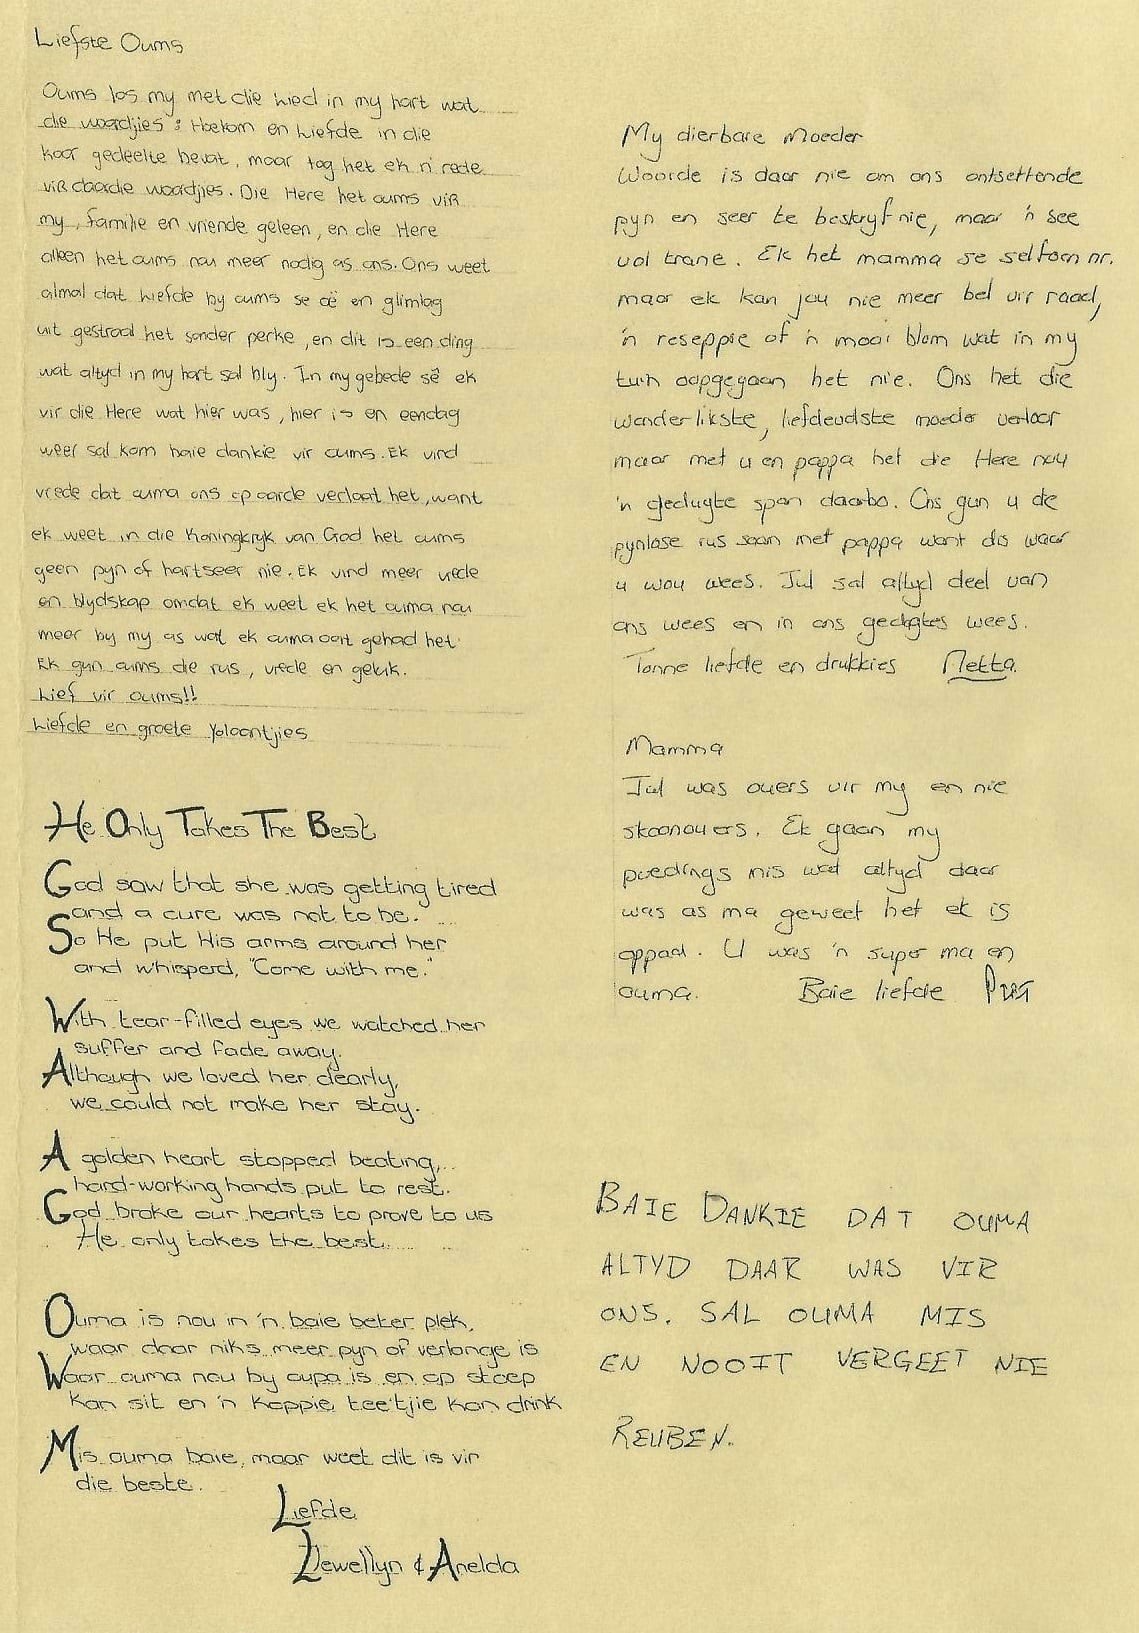 Liefste Oums
Oums los my met die lied in my hart wat
die woordjies : Hoekom en Liefde in die
koor gedeelte bevat, maar tog het ek n' rede
vir daardie woordjies. Die Here het oums vir
my, familie en vriende geleen, en die Here
alleen het oums nou meer nodig as ons. Ons weet
almal dat liefde by oums se oë en glimlag
uit gestraal het sonder perke, en dit is een ding
wat altyd in my hart sal bly. In my gebede sê ek
vir die Here wat hier was, hier is en eendag
weer sal kom baie dankie vir oums. Ek vind
vrede dat ouma ons op aarde verlaat het, want
ek weet in die Koningkryk van God het oums
geen pyn of hartseer nie. Ek vind meer vrede
en blydskap omdat ek weet ek het ouma nou
meer by my as wat ek ouma ooit gehad het.
Ek gun oums die rus, vrede en geluk.
Lief vir oums!!
Liefde en groete Yolaantjies
He Only Takes The Best
God saw that she was getting tired
and a cure was not to be.
So He put His arms around her
and whisperd, "Come with me."
With tear-filled eyes we watched her
suffer and fade away.
Although we loved her dearly,
we could not make her stay.
A golden heart stopped beating,
hard-working hands put to rest.
God broke our hearts to prove to us
He only takes the best.
Ouma is nou in 'n baie beter plek,
waar daar niks meer pyn of verlange is
Waar ouma nou by oupa is en op stoep
kan sit en 'n koppie tee'tjie kan drink
Mis ouma baie, maar weet dit is vir
die beste.
Liefde
Llewellyn & Anelda
My dierbare Moeder
Woorde is daar nie om ons ontsettende
pyn en seer te beskryf nie, maar 'n see
vol trane. Ek het mamma se selfoon nr.
maar ek kan jou nie meer bel vir raad,
'n reseppie of 'n mooi blom wat in my
tuin oopgegaan het nie. Ons het die
wonderlikste, liefdevolste moeder verloor
maar met u en pappa het die Here nou
'n gedugte span daarbo. Ons gun u die
pynlose rus saam met pappa want dis waar
u wou wees. Jul sal altyd deel van
ons wees en in ons gedagtes wees.
Tonne liefde en drukkies Netta.
Mamma
Jul was ouers vir my en nie
skoonouers. Ek gaan my
poedings mis wat altyd daar
was as ma geweet het ek is
oppad. U was 'n super ma en
ouma. Baie liefde Piet
BAIE DANKIE DAT OUMA
ALTYD DAAR WAS VIR
ONS. SAL OUMA MIS
EN NOOIT VERGEET NIE
REUBEN.